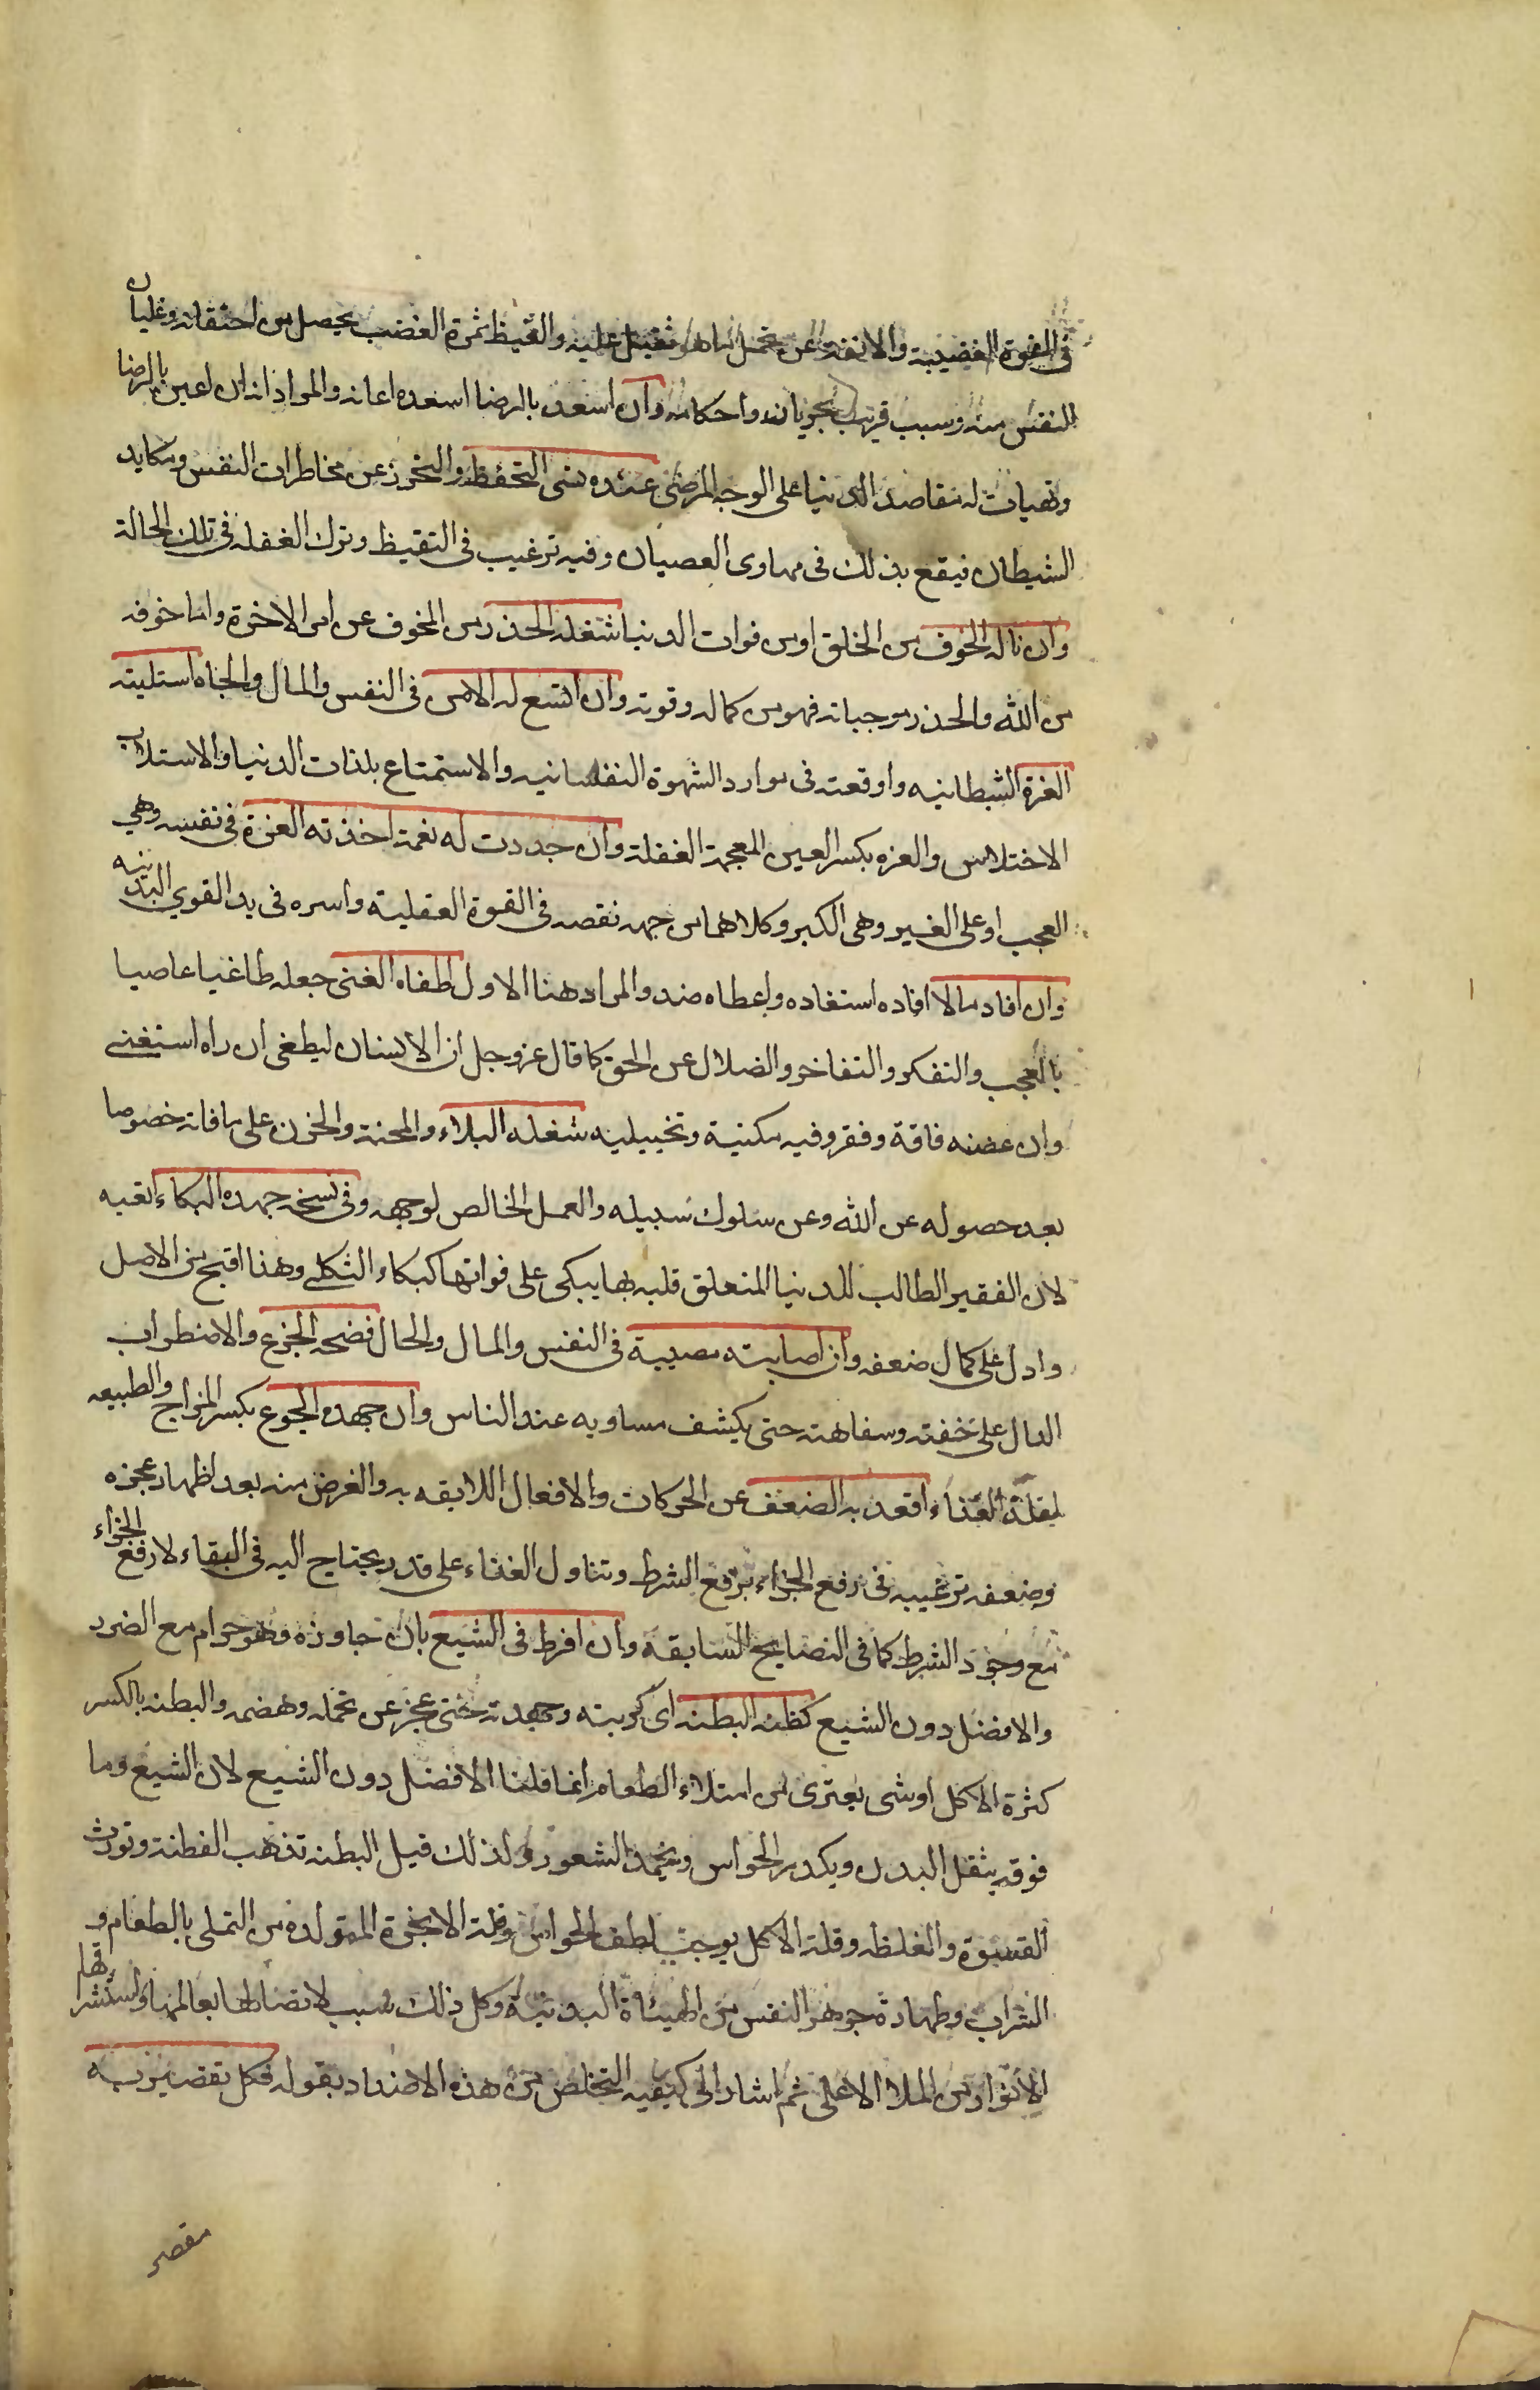 في القوة الغضبية والانفة عن تحمل ما هو ثقيل عليه والغيظ ثمرة الغضب يحصل من احتقانه وغليان
النفس منه وسبب قريب لجريانه واحكامه وان اسعد بالرضا اسعده اعانه والمراد انه ان اعين بالرضا
وتهيات له مقاصد الدنيا على الوجه المرضى عنده نسى التحفظ والتحرز عن مخاطرات النفس ومكايد
الشيطان فيقع بذلك فى مهاوى العصيان وفيه ترغيب فى التقيظ وترك الغفلة فى تلك الحالة
وان ناله الخوف من الخلق او من فوات الدنيا شغله الحذر من المخوف عن امر الاخرة واما خوفه
من الله والحذر موجباته فهو من كماله وقوته وان اتسع له الامن فى النفس والمال والجاه استلبته
الغرة الشيطانيه واوقعته فى موارد الشهوة النفسانيه والاستمتاع بلذات الدنيا والاستلاب
الاختلاس والغره بكسر الغين المعجمة الغفلة وان جددت له نعمة اخذته العزة فى نفسه وهي
العجب او على الغير وهى الكبر وكلاهما من جهه نقصه فى القوة العقلية واسره فى يد القوي البدنيه
وان افاد مالا افاده استفاده واعطاه ضد والمراد هنا الاول اطغاه الغنى جعله طاغيا عاصيا
بالعجب والتفكر والتفاخر والضلال عن الحق كما قال عز وجل ان الانسان ليطغى ان راه استغنى
وان عضته فاقة وفقر وفيه مكنية وتخييليه شغله البلاء والمحنة والحزن على ما فاته خصوصا
بعد حصوله عن الله وعن سلوك سبيله والعمل الخالص لوجهه وفى نسخه جهده البكاء اتعبه
لان الفقير الطالب للدنيا المتعلق قلبه بها يبكى على فواتها كبكاء الثكلى وهذا اقبح من الاصل
وادل على كمال ضعفه وان اصابته مصيبة فى النفس والمال والحال فضحه الجزع والاضطراب
الدال على خفته وسفاهته حتى يكشف مساويه عند الناس وان جهده الجوع بكسر المزاج والطبيعه
لقلة الغذاء اقعد به الضعف عن الحركات والافعال اللايقه به والغرض منه بعد اظهار عجزه
وضعفه ترغيبه فى رفع الجزاء برفع الشرط وتناول الغذاء على قدر يحتاج اليه فى البقاء لا رفع الجزاء
مع وجود الشرط كما فى النصايح السابقة وان افرط فى الشبع بان جاوزه وهو حرام مع الضرر
والافضل دون الشبع كظته البطنه اى كربته وجهدته حتى عجز عن تحمله وهضمه والبطنه بالكسر
كثرة الاكل او شى يعترى من امتلاء الطعام انما قلنا الافضل دون الشبع لان الشبع وما
فوقه يثقل البدن ويكدر الحواس ويخمد الشعور ولذلك قيل البطنه تذهب الفطنة وتورث
القسوة والغلظه وقلة الاكل يوجب لطف الحواس وقلة الابخرة المتولده من التملى بالطعام و
الشراب وطهارة جوهر النفس من الهيئاة البدنية وكل ذلك سبب لاتصالها بعالمها واستشراقها
الانوار من الملا الاعلى ثم اشار الى كيفيه التخلص من هذه الاضداد بقوله فكل تقصير به
مقصر